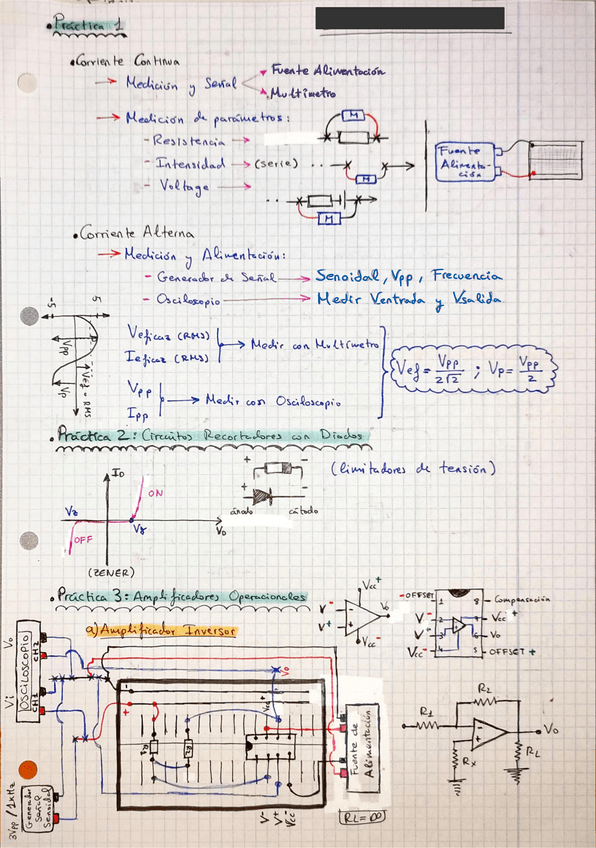 • Práctica 1
• Corriente Continua
→ Medición y Señal
Fuente Alimentación
Multímetro
→ Medición de parámetros:
- Resistencia →
M
- Intensidad → (serie) ...
M
- Voltage →
...
M
Fuente Alimenta-
ción
• Corriente Alterna
→ Medición y Alimentación:
- Generador de Señal → Senoidal, Vpp, Frecuencia
- Osciloscopio → Medir Ventrada y Vsalida
-5
5
Vpp
Vp
Vef = RMS
Veficaz (RMS)
Ieficaz (RMS)
→ Medir con Multímetro
Vpp
Ipp
→ Medir con Osciloscopio
Vef = Vpp / 2√2 ; Vp = Vpp / 2
• Práctica 2: Circuitos Recortadores con Diodos
ID
ON
Vz
Vγ
VD
OFF
(ZENER)
+ -
+ -
ánodo cátodo
(limitadores de tensión)
• Práctica 3: Amplificadores Operacionales
a) Amplificador Inversor
Vcc+
V-
V+
Vo
Vcc-
-OFFSET 1 8 Compensación
V- 2 7 Vcc+
V+ 3 6 Vo
Vcc- 4 5 OFFSET +
Vo
Vi
OSCILOSCOPIO
CH2
CH1
3Vpp / 1kHz
Generador
Señal
Senoidal
-
+
R1
R2
Vo
Vcc+
V-
V+
Vcc-
Fuente de
Alimentación
RL = ∞
R1
R2
Rx
RL
Vo